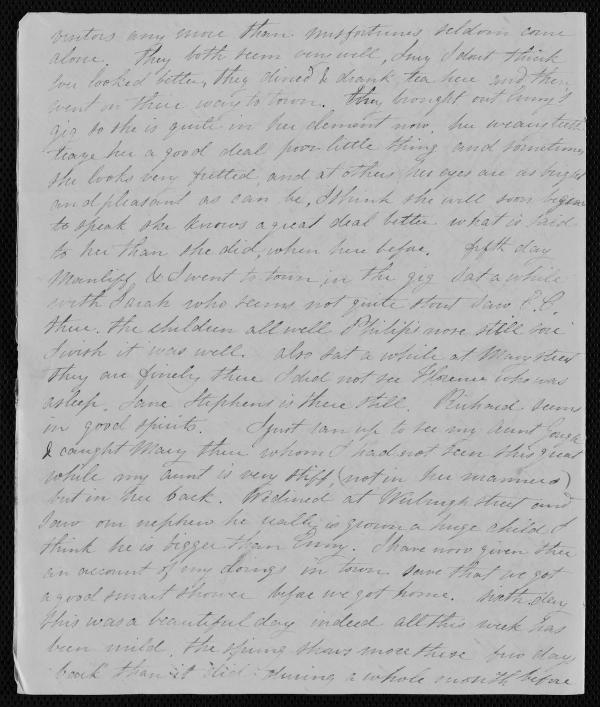 visitors any more than misfortunes seldom come
alone. They both seem very well, Lucy I dont think
ever looked better, they dined & drank tea here and then
went on their way to town. They brought out Anny's
gig so she is quite in her element now. her weary teeth
teaze her a good deal poor little thing and sometimes
she looks very fretted, and at others her eyes are as bright
and pleasant as can be, I think she will soon begin
to speak she knows a great deal better what is said
to her than she did, when here before. fifth day
Manliff & I went to town in the gig sat a while
with Sarah who seems not quite stout saw E. C.
there. the children all well Philip's nose still sore
I wish it was well. also sat a while at Mary street
they are finely there I did not see Florence who was
asleep. Jane Stephens is there still. Richard seems
in good spirits. I just ran up to see my Aunt
& caught Mary there whom I had not seen this great
while my aunt is very stiff, (not in her manners)
but in her back. We dined at Werburgh street and
saw our nephew he really is grown a huge child I
think he is bigger than Anny. I have now given thee
an account of my doings in town save that we got
a good smart shower before we got home. sixth day
this was a beautiful day indeed all this week has
been mild. the spring shews more these few days
back than it did during a whole month before